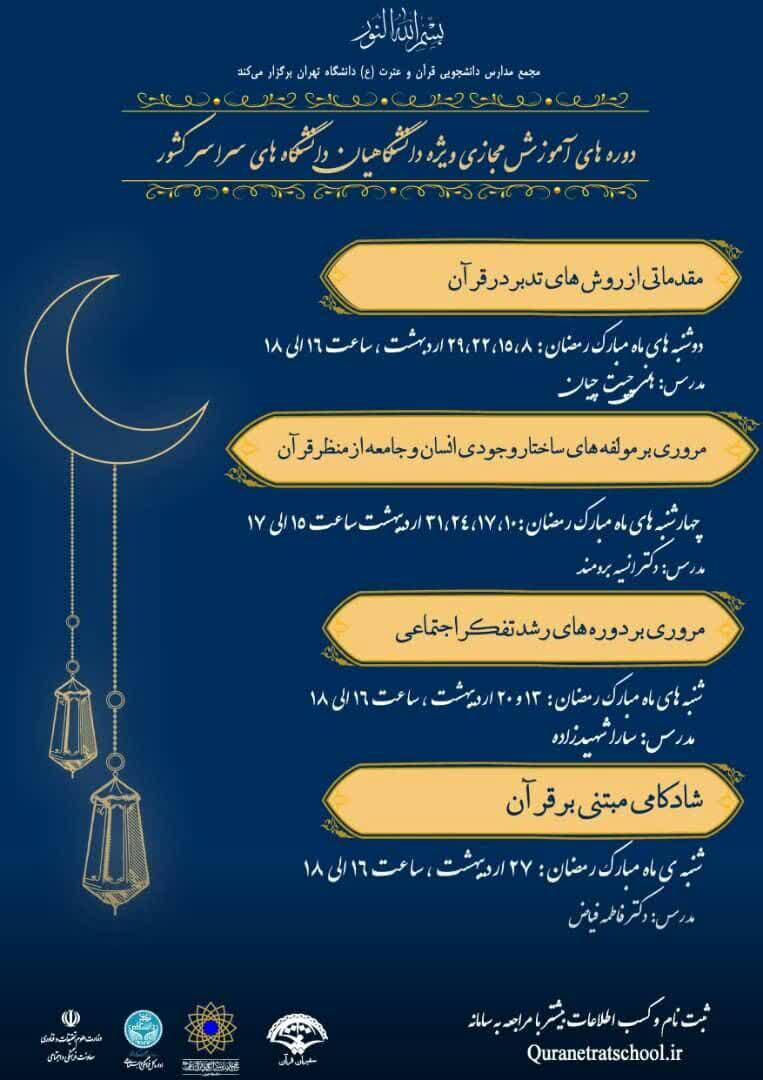 بسم الله النور
مجمع مدارس دانشجویی قرآن و عترت (ع) دانشگاه تهران برگزار می‌کند
دوره های آموزش مجازی ویژه دانشگاهیان دانشگاه های سراسر کشور
مقدماتی از روش های تدبر در قرآن
دوشنبه های ماه مبارک رمضان: ۸، ۱۵، ۲۲، ۲۹ اردیبهشت، ساعت ۱۶ الی ۱۸
مدرس: هانی چیت چیان
مروری بر مولفه های ساختار وجودی انسان و جامعه از منظر قرآن
چهارشنبه های ماه مبارک رمضان: ۱۰، ۱۷، ۲۴، ۳۱ اردیبهشت ساعت ۱۵ الی ۱۷
مدرس: دکتر انسیه برومند
مروری بر دوره های رشد تفکر اجتماعی
شنبه های ماه مبارک رمضان: ۱۳ و ۲۰ اردیبهشت، ساعت ۱۶ الی ۱۸
مدرس: سارا شهیدزاده
شادکامی مبتنی بر قرآن
شنبه ی ماه مبارک رمضان: ۲۷ اردیبهشت، ساعت ۱۶ الی ۱۸
مدرس: دکتر فاطمه فیاض
ثبت نام و کسب اطلاعات بیشتر با مراجعه به سامانه
Quranetratschool.ir
سفیران قرآن
وزارت علوم تحقیقات و فناوری
معاونت فرهنگی و اجتماعی